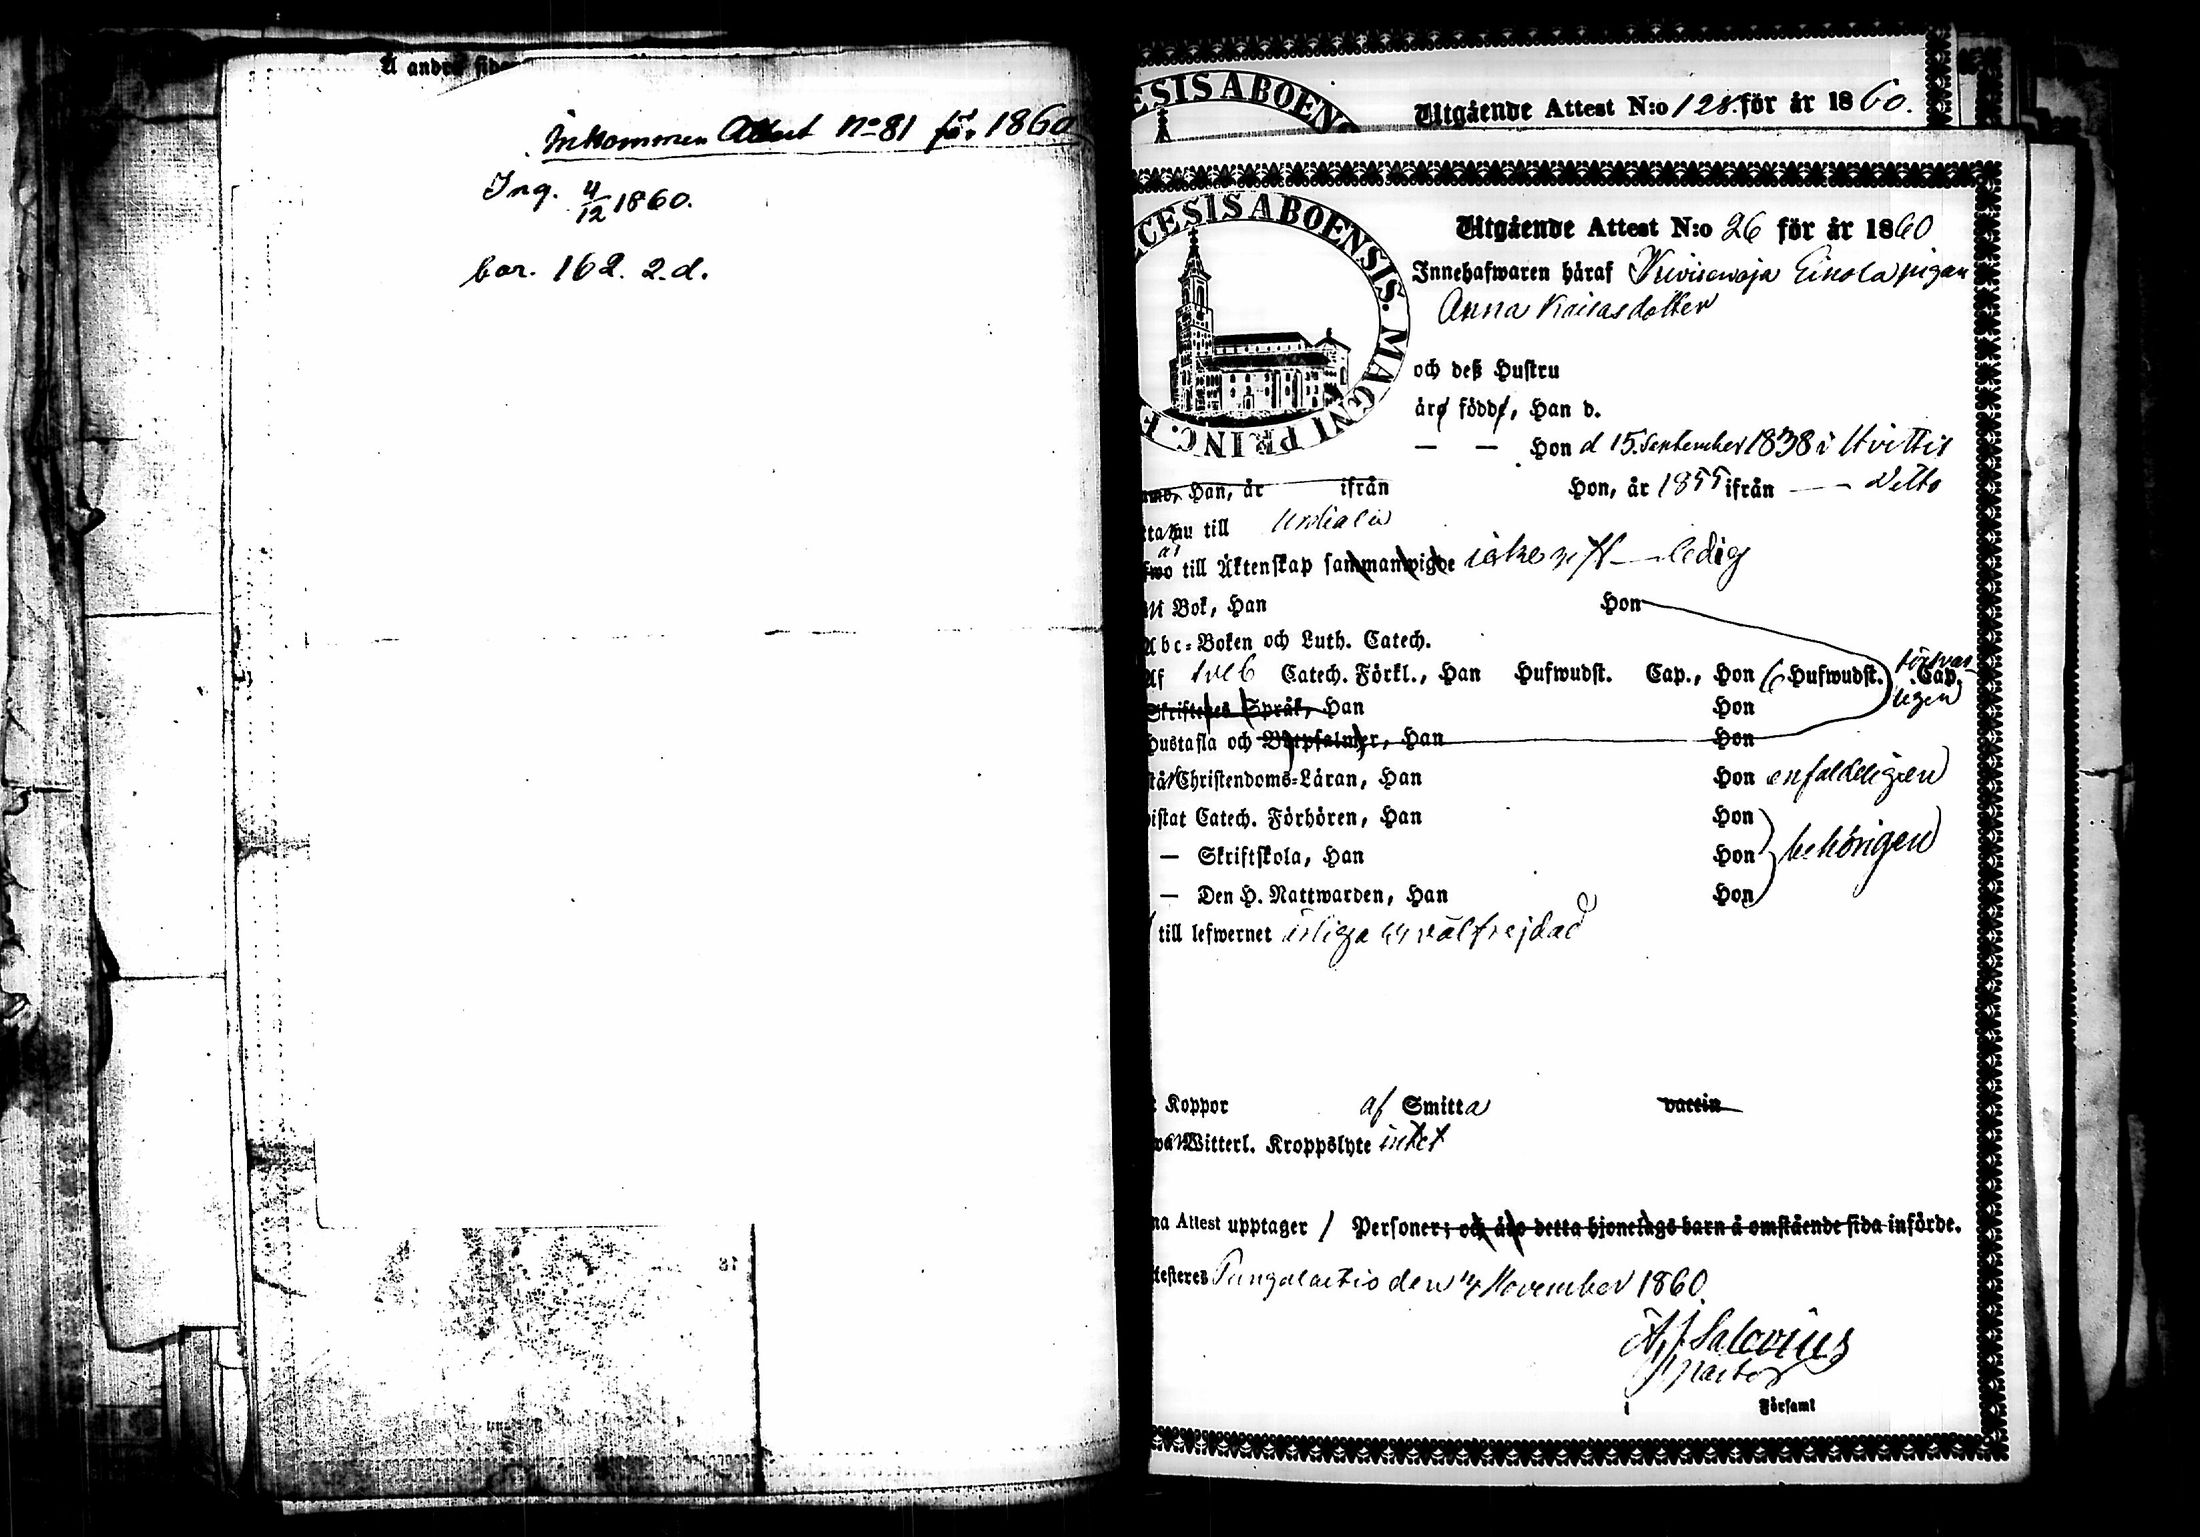 Å andra sidan
Inkommen Attest No 81 för 1860
Ing. 4/12 1860.
bor. 162. 2.d.
ESIS ABOEN
Utgående Attest N:o 128. för år 1860.
CESIS ABOENSIS. MAGNI PRINC. F
Utgående Attest N:o 26 för år 1860
Innehafwaren häraf Kuvisenoja Einola pigan
Anna Kaisasdotter
och deß Hustru
äro födde, Han d.
— — Hon d 15. September 1838 i Hvittis
Han, år ifrån Hon, år 1855 ifrån — Vilto
nu till Urdiala
till Äktenskap sammanwigde icke gift — ledig
Bok, Han Hon
Abc-Boken och Luth. Catech.
Af Catech. Förkl., Han Hufwudst. Cap., Hon 6 Hufwudst. Cap. försvar-
ligen
Skriftenes Språk, Han Hon
Hustafla och Botpsalmer, Han Hon
Christendoms-Läran, Han Hon enfaldeligen
wistat Catech. Förhören, Han Hon
— Skriftskola, Han Hon behörigen
— Den H. Nattwarden, Han Hon
till lefwernet ärliga och välfrejdad
Koppor af Smitta vaccin
Witterl. Kroppslyte intet
na Attest upptager 1 Personer; och äro detta hjonelags barn å omstående sida införde.
testeres Pungalaitio den 14 November 1860.
A J Salovius
Pastor
Församl
31